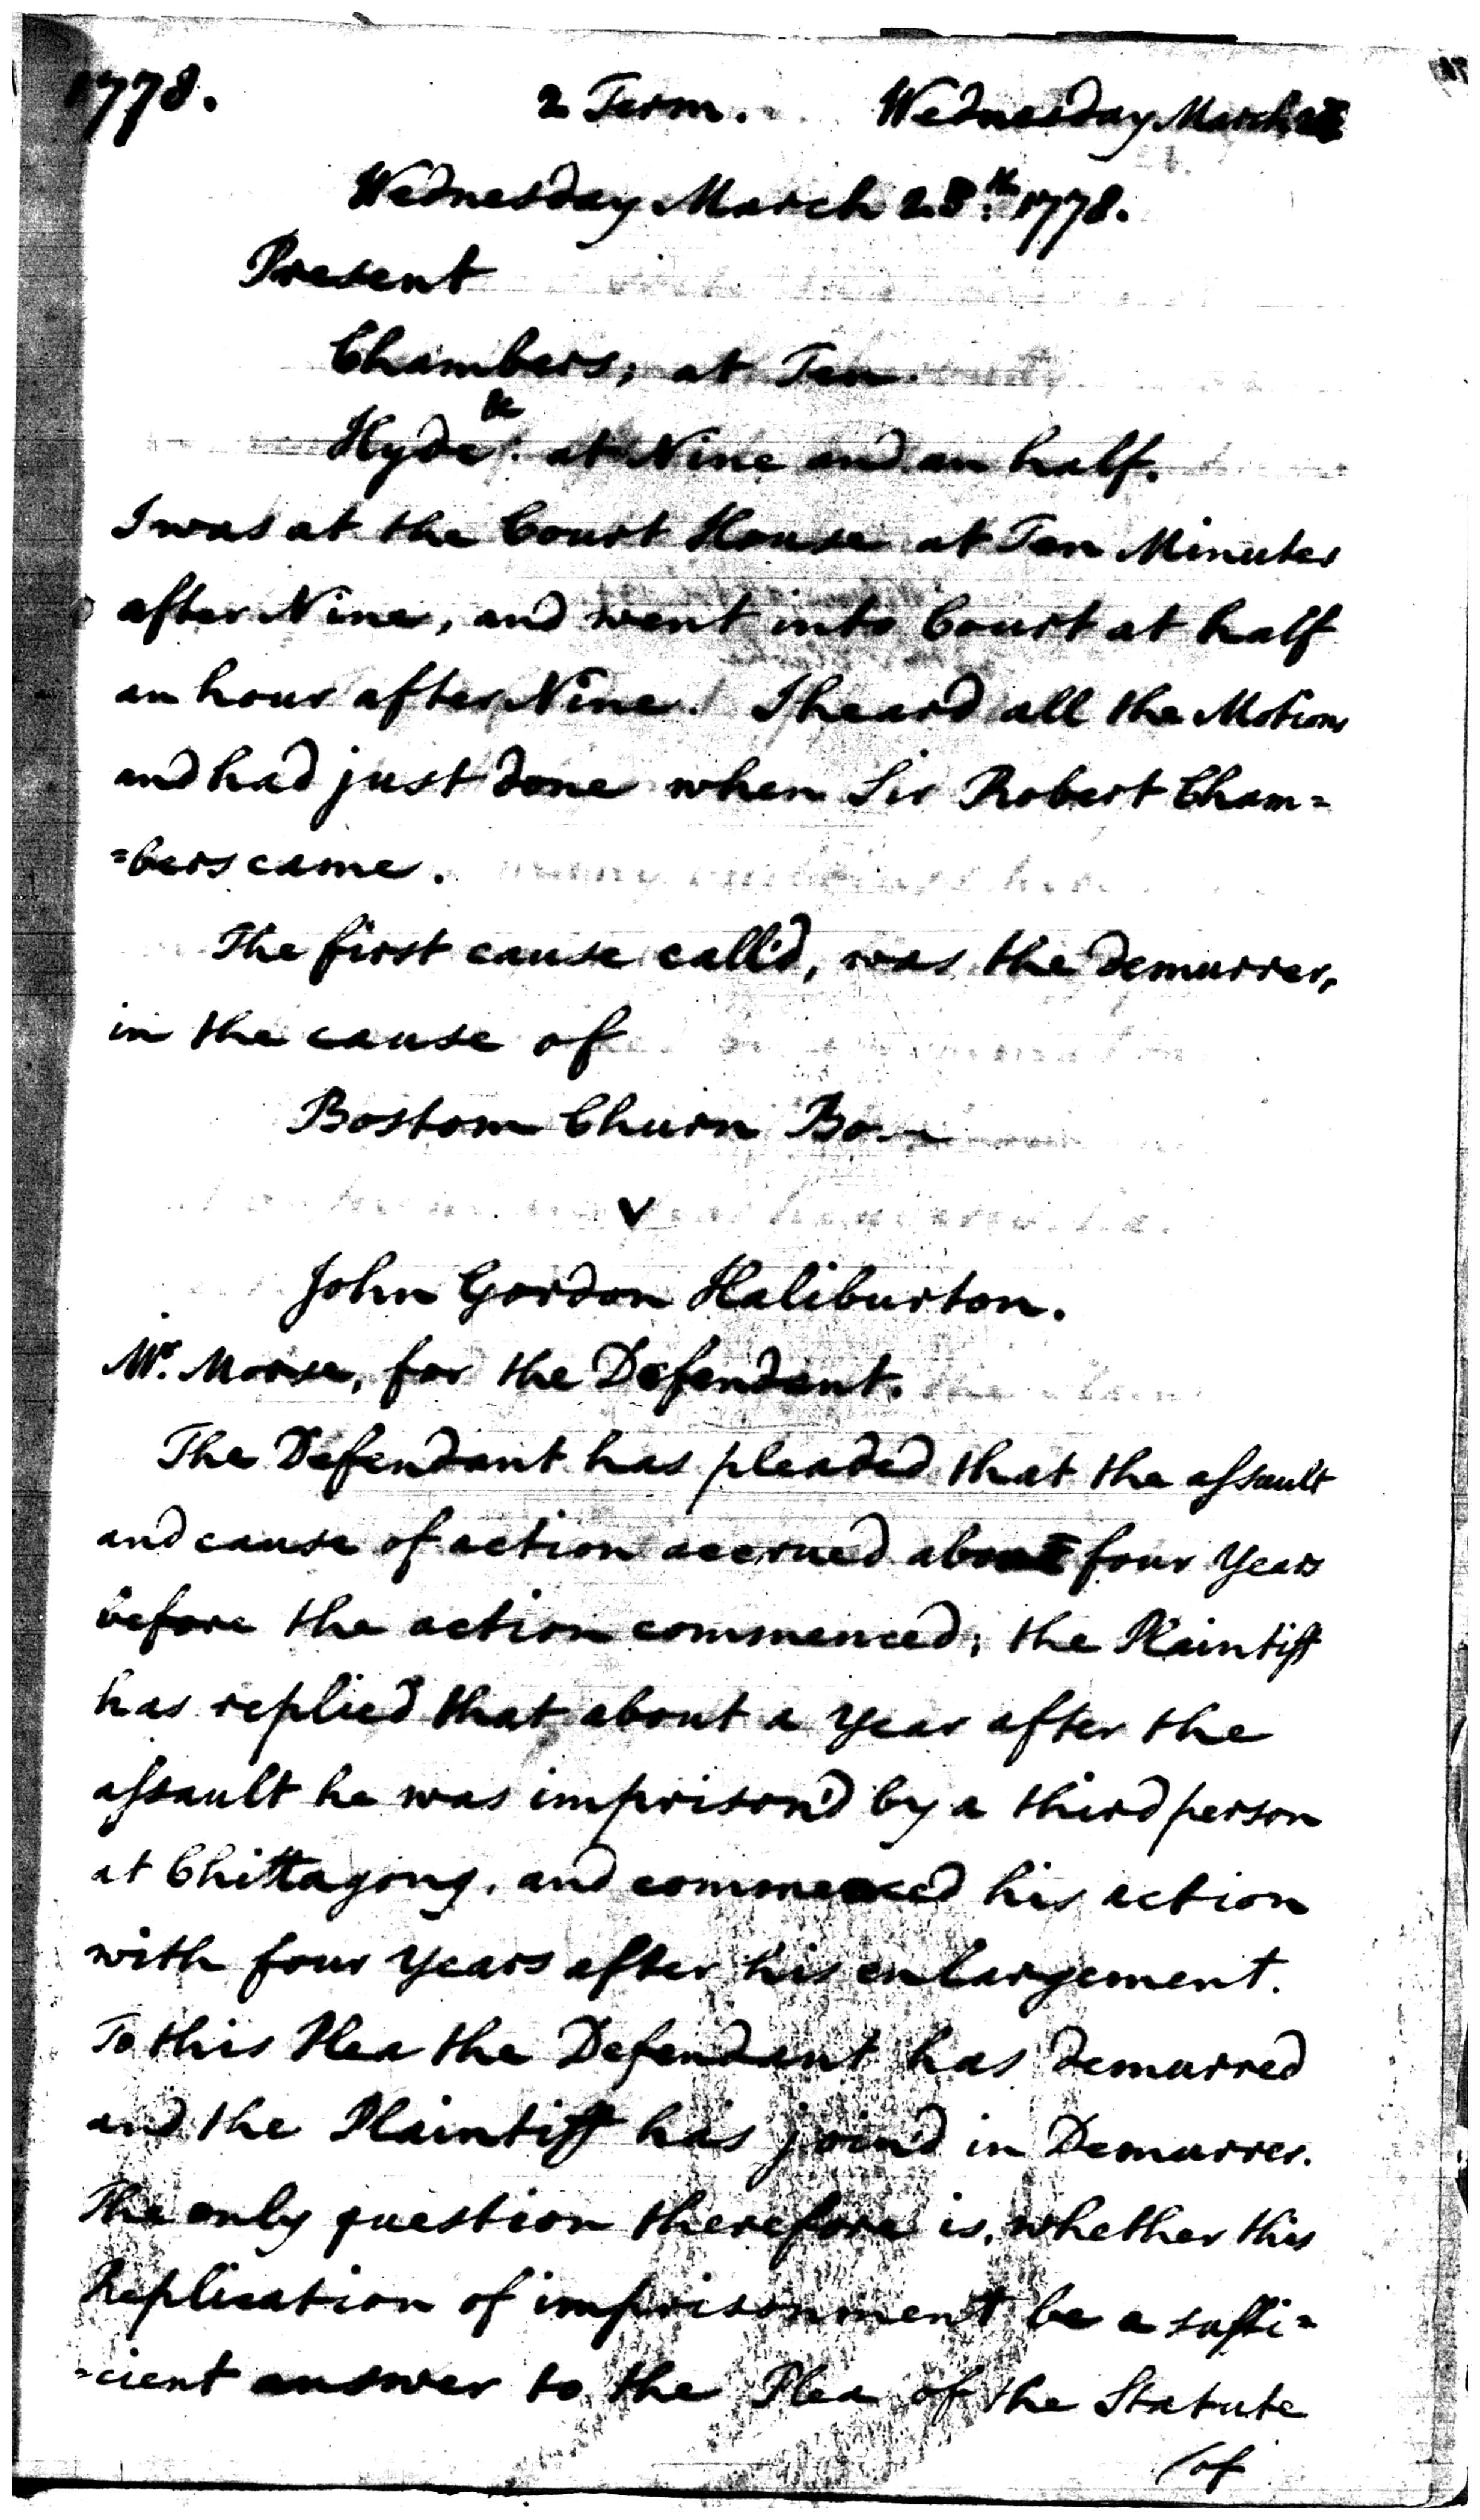 1778. 2 Term. Wednesday March
Wednesday March 25.th 1778.
Present
Chambers; at Ten.
Hyde at Nine and an half.
I was at the Court House at Ten Minutes
after Nine, and went into Court at half
an hour after Nine. I heard all the Motions
and had just done when Sir Robert Cham=
=bers came.
The first cause call'd, was the demurrer,
in the cause of
Bostom Churn Bo
v
John Gordon Haliburton.
Mr. Morse, for the Defendant.
The Defendant has pleaded that the assault
and cause of action accrued about four years
before the action commenced; the Plaintiff
has replied that about a year after the
assault he was imprison'd by a third person
at Chittagong, and commenced his action
with four years after his enlargement.
To this Plea the Defendant has demurred
and the Plaintiff has join'd in Demurrer.
The only question therefore is, whether this
Replication of imprisonment be a suffi=
=cient answer to the Plea of the Statute
(of